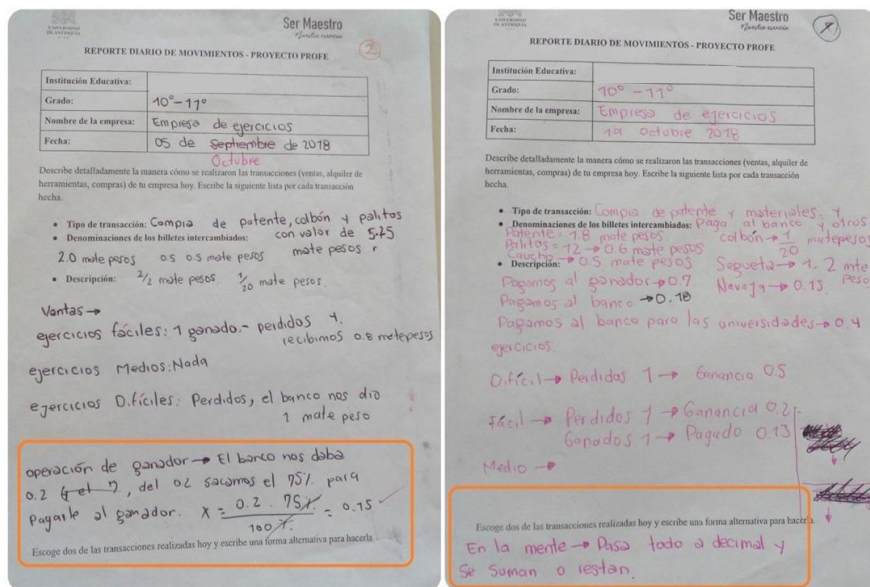 UNIVERSIDAD
DE ANTIOQUIA
Ser Maestro
Nuestra esencia
2
REPORTE DIARIO DE MOVIMIENTOS - PROYECTO PROFE
Institución Educativa:
Grado: 10° - 11°
Nombre de la empresa: Empresa de ejercicios
Fecha: 05 de Septiembre de 2018
Octubre
Describe detalladamente la manera cómo se realizaron las transacciones (ventas, alquiler de
herramientas, compras) de tu empresa hoy. Escribe la siguiente lista por cada transacción
hecha.
• Tipo de transacción: Compra de patente, colbón y palitos
• Denominaciones de los billetes intercambiados: con valor de 5.75
2.0 mate pesos 0.5 0.5 mate pesos mate pesos
• Descripción: 2/2 mate pesos 1/20 mate pesos.
Ventas →
ejercicios fáciles: 1 ganado.- perdidos 4.
recibimos 0.8 matepesos
ejercicios Medios: Nada
ejercicios Difíciles: Perdidos, el banco nos dio
1 mate peso
operación de ganador → El banco nos daba
0.2, del 0.2 sacamos el 75% para
Pagarle al ganador. X = 0.2 . 75% / 100% = 0.15
Escoge dos de las transacciones realizadas hoy y escribe una forma alternativa para hacerla
UNIVERSIDAD
DE ANTIOQUIA
Ser Maestro
Nuestra esencia
REPORTE DIARIO DE MOVIMIENTOS - PROYECTO PROFE
Institución Educativa:
Grado: 10° - 11°
Nombre de la empresa: Empresa de ejercicios
Fecha: 19 Octubre 2018
Describe detalladamente la manera cómo se realizaron las transacciones (ventas, alquiler de
herramientas, compras) de tu empresa hoy. Escribe la siguiente lista por cada transacción
hecha.
• Tipo de transacción: Compra de patente y materiales. Y
• Denominaciones de los billetes intercambiados: Pago al banco y otros
Patente = 1.8 mate pesos colbón → 1/20 matepesos
Palitos = 12 → 0.6 mate pesos
Caucho → 0.5 mate pesos Segueta → 1.2 mte
• Descripción: Navaja → 0.15 Peso
Pagamos al ganador → 0.7
Pagamos al banco → 0.18
Pagamos al banco para las universidades → 0.4
ejercicios.
Difícil → Perdidos 1 → Ganancia 0.5
Fácil → Perdidos 1 → Ganancia 0.2
Ganados 1 → Pagado 0.13
Medio →
Escoge dos de las transacciones realizadas hoy y escribe una forma alternativa para hacerla.
En la mente → Pasa todo a decimal y
se suman o restan.